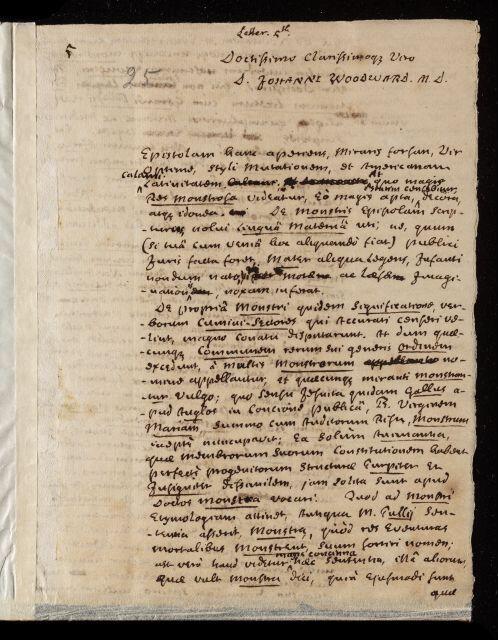 5
Letter. 5th.
25
Doctissimo Clarissimoq; Viro
D. JOHANNI WOODWARD. M.D.
Epistolam hanc aperiens, Miraris forsan, Vir
Optime, styli Mutationem, et Americanam
calami
Latinitatem quo magis
Res Monstrosa videatur, Eò magis apta, decora,
atq; idonea. De Monstris Epistolam scrip-
-turus volui linguâ Maternâ uti; ne, quum
(si tuâ cum veniâ hoc aliquando fiat) Publici
Juris facta foret, Mater aliqua legens, Infanti
nondum nato ac Imagi-
-nation noxam inferat.
De propriâ Monstri quidem Significatione, ver-
-borum Cumini-Sectores qui Accurati censeri ve-
-lint, magno conatu disputarunt. At dum quæ-
-cunq; Communem rerum sui generis ordinem
excedunt, a Multis Monstrorum no-
-mine appellantur, et quæcunq; miranti monstran-
-tur Vulgo; quo sensu Jesuita quidam Gallus a-
-pud Anglos in Concione Publicâ, B. Virginem
Mariam, summo cum Auditorum Risu, Monstrum
ineptè nuncupavit; Ea solum Animantia,
quæ Membrorum suorum Constitutionem habent
perfectæ progenitorum structuræ Turpiter et
Insigniter disparilem, jam solita sunt apud
Doctos monstra vocari. Quod ad Monstri
Etymologiam attinet, Aliquis M. Tullij sen-
-tentiæ assent, Monstra, quòd res Eventuras
mortalibus Monstrent, suum sortiri nomen;
magis concinna
ast verò haud videtur hæc sententia, illâ aliorum,
Quæ vult Monstra dici, quòd Ejusmodi sunt
quæ